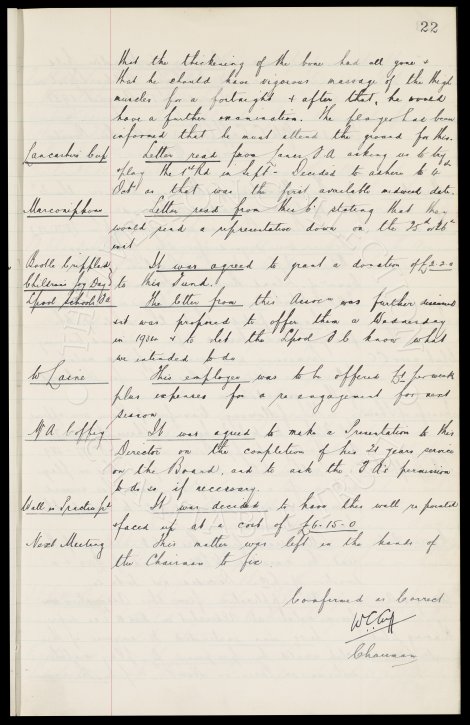 22
that the thickening of the bone had all gone &
that he should have vigorous massage of the thigh
muscles for a fortnight & after that, he would
have a further examination. The player has been
informed that he must attend the ground for this.
Lancashire Cup Letter read from Lancs F A asking us to try &
play the 1st Rd in Sept - Decided to adhere to 4
Octr as that was the first available midweek date.
Marconiphone Letter read from this Co stating that they
would send a representative down on the 25 or 26th
inst
Bootle Crippled It was agreed to grant a donation of £2.2.0
Childrens Joy Day to this Fund.
Lpool Schools FA The letter from this Assocn was further discussed
it was proposed to offer them a Wednesday
in & to let the Lpool F C know what
we intended to do
W Laine This employee was to be offered per week
plus expenses for a re-engagement for next
season
Mr A Coffey It was agreed to make a Presentation to this
Director on the completion of his 21 years service
on the Board, and to ask the F A's permission
to do so, if necessary.
Wall in Practice It was decided to have this wall repaired
& faced up at a cost of £6-15-0
Next Meeting This matter was left in the hands of
the Chairman to fix.
Confirmed as Correct
W C Cuff
Chairman